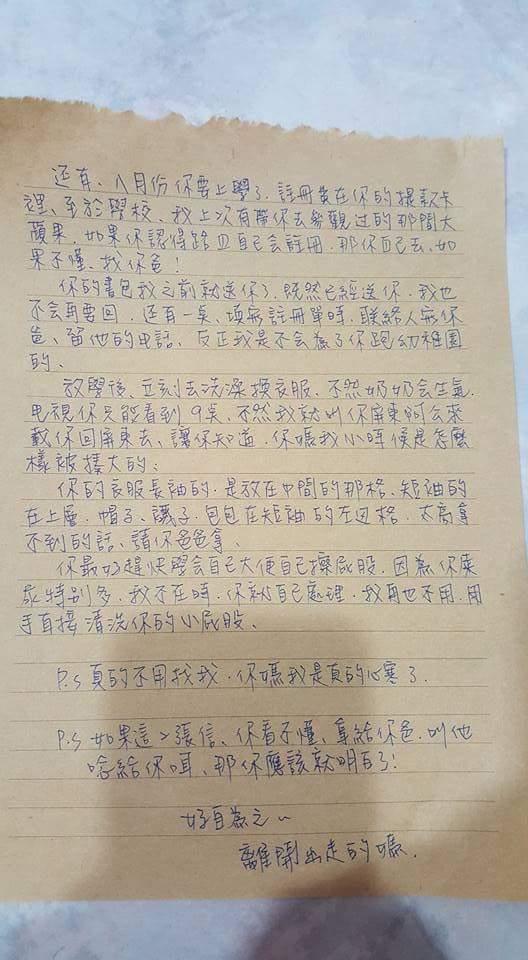 还有、八月份你要上學了.註冊費在你的提款卡
裡、至於學校、我上次有帶你去參觀过的那間大
蘋果.如果你認得路且自己会註冊.那你自己去、如
果不懂、找你爸!
你的書包我之前就送你了.既然已經送你、我也
不会再要回.还有一点、填寫註冊單時.联絡人寫你
爸、留他的电話.反正我是不会為了你跑幼稚園
的、
放學後、立刻去洗澡換衣服、不然奶奶会生氣.
电視你只能看到9点、不然我就叫你屏東阿公來
載你回屏東去、讓你知道.你媽我小時候是怎麼
樣被揍大的;
你的衣服長袖的.是放在中間的那格.短袖的
在上層.帽子、襪子、包包在短袖的左边格.太高拿
不到的話、請你爸爸拿、
你最好趕快學会自己大便自己擦屁股.因為你
尿特別多.我不在時.你就自己處理.我再也不用.用
手直接清洗你的小屁股、
P.S 真的不用找我.你媽我是真的心寒了.
P.S 如果這2張信、你看不懂、拿給你爸.叫他
唸給你听、那你應該就明白了!
好自為之~
離開出走的媽.